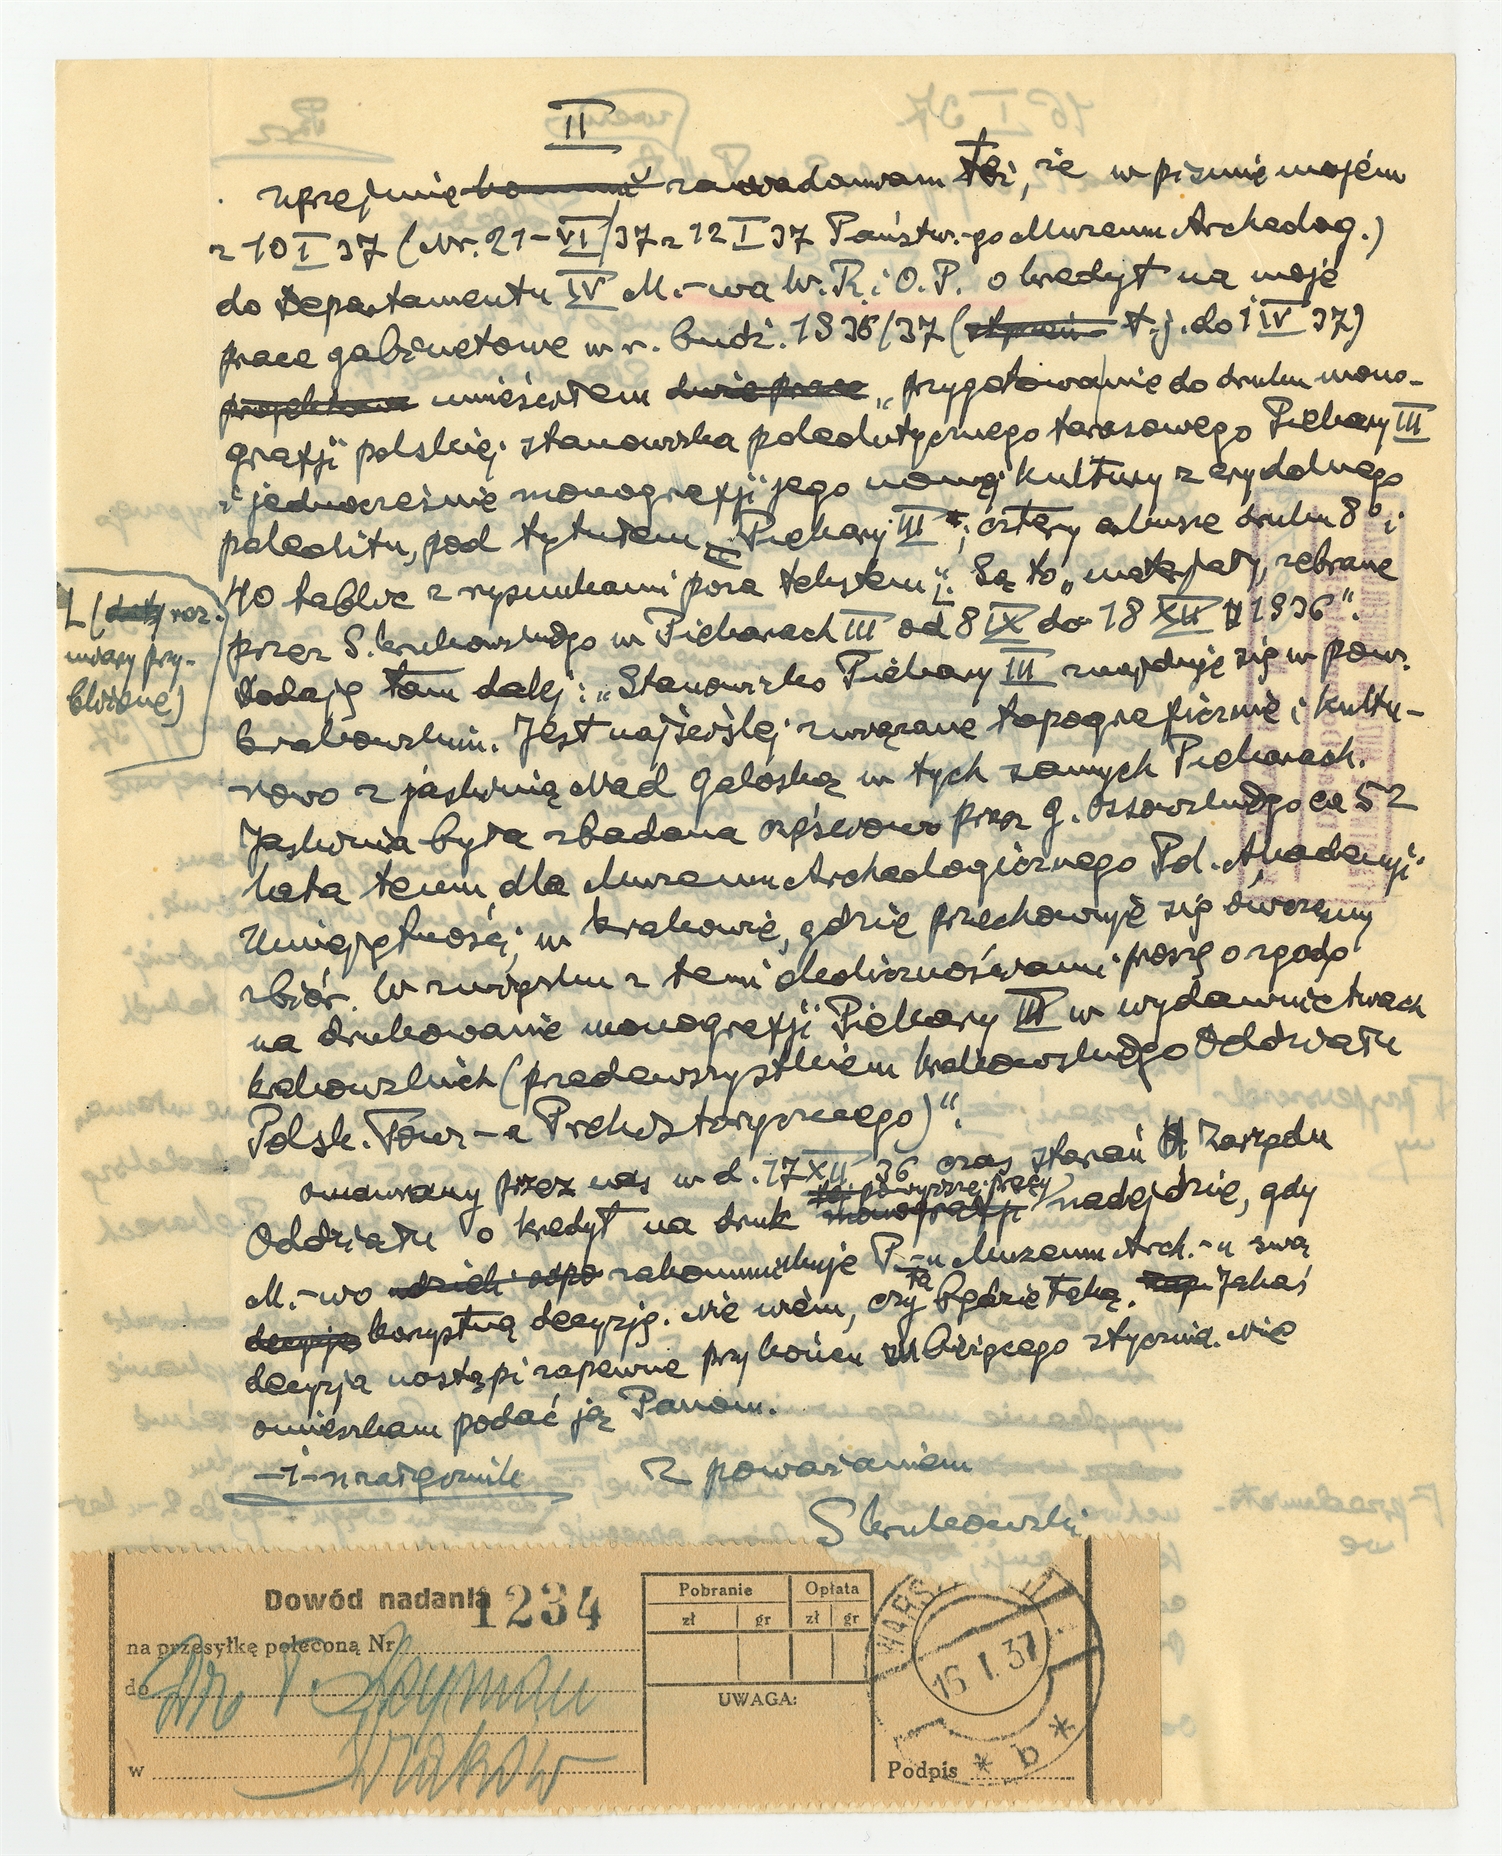 II
uprzejmie zawiadamiam też, że w piśmie mojém
z 10 I 37 (Nr. 21-VI/37 z 12 I 37 Państw.-go Muzeum Archeolog.)
do Departamentu IV M.-wa W.R. i O.P. o kredyt na moje
prace gabinetowe w r. budż. 1936/37 (t.j. do 1 IV 37)
umieściłem dwie prace „przygotowanie do druku mono-
grafji polskiej stanowiska paleolitycznego tarasowego Piekary III
i jednocześnie monografji jego nowej kultury z czy dolnego
paleolitu, pod tytułem „Piekary III”, cztery arkusze druku 8° i
40 tablic z rysunkami poza tekstem”. Są to „materjały, zebrane
[(rozmiary przy-
bliżone)
przez S. Krukowskiego w Piekarach III od 8 IX do 18 XII 1936”.
Dodaję tam dalej: „Stanowisko Piekary III znajduje się w pow.
krakowskim. Jest najściślej związane topograficznie i kultu-
rowo z jaskinią Nad Galoską w tych samych Piekarach.
Jaskinia była zbadana częściowo przez G. Ossowskiego ca 52
lata temu, dla Muzeum Archeologicznego Pol. Akademji
Umiejętności w Krakowie, gdzie przechowuje się ówczesny
zbiór. W związku z temi okolicznościami proszę o zgodę
na drukowanie monografji Piekary III w wydawnictwach
krakowskich (przedewszystkiem krakowskiego Oddziału
Polsk. Tow.-a Prehistorycznego)”.
omawiany przez nas w d. 17 XII 36 czas starań Zarządu
Oddziału o kredyt na druk powyższej pracy nadejdzie, gdy
M.-wo zakomunikuje P.-u Muzeum Arch.-u swą
korzystną decyzję. Nie wiem, czy ta będzie taką. Jakaś
decyzja nastąpi zapewne przy końcu bieżącego stycznia. Nie
omieszkam podać ją Panom.
-1- załącznik Z poważaniem
S Krukowski
Dowód nadania 1234
na przesyłkę poleconą Nr
do Dr. T. Reyman
w Kraków
Pobranie Opłata
zł gr zł gr
UWAGA:
WARS
16 I. 37
* b *
Podpis